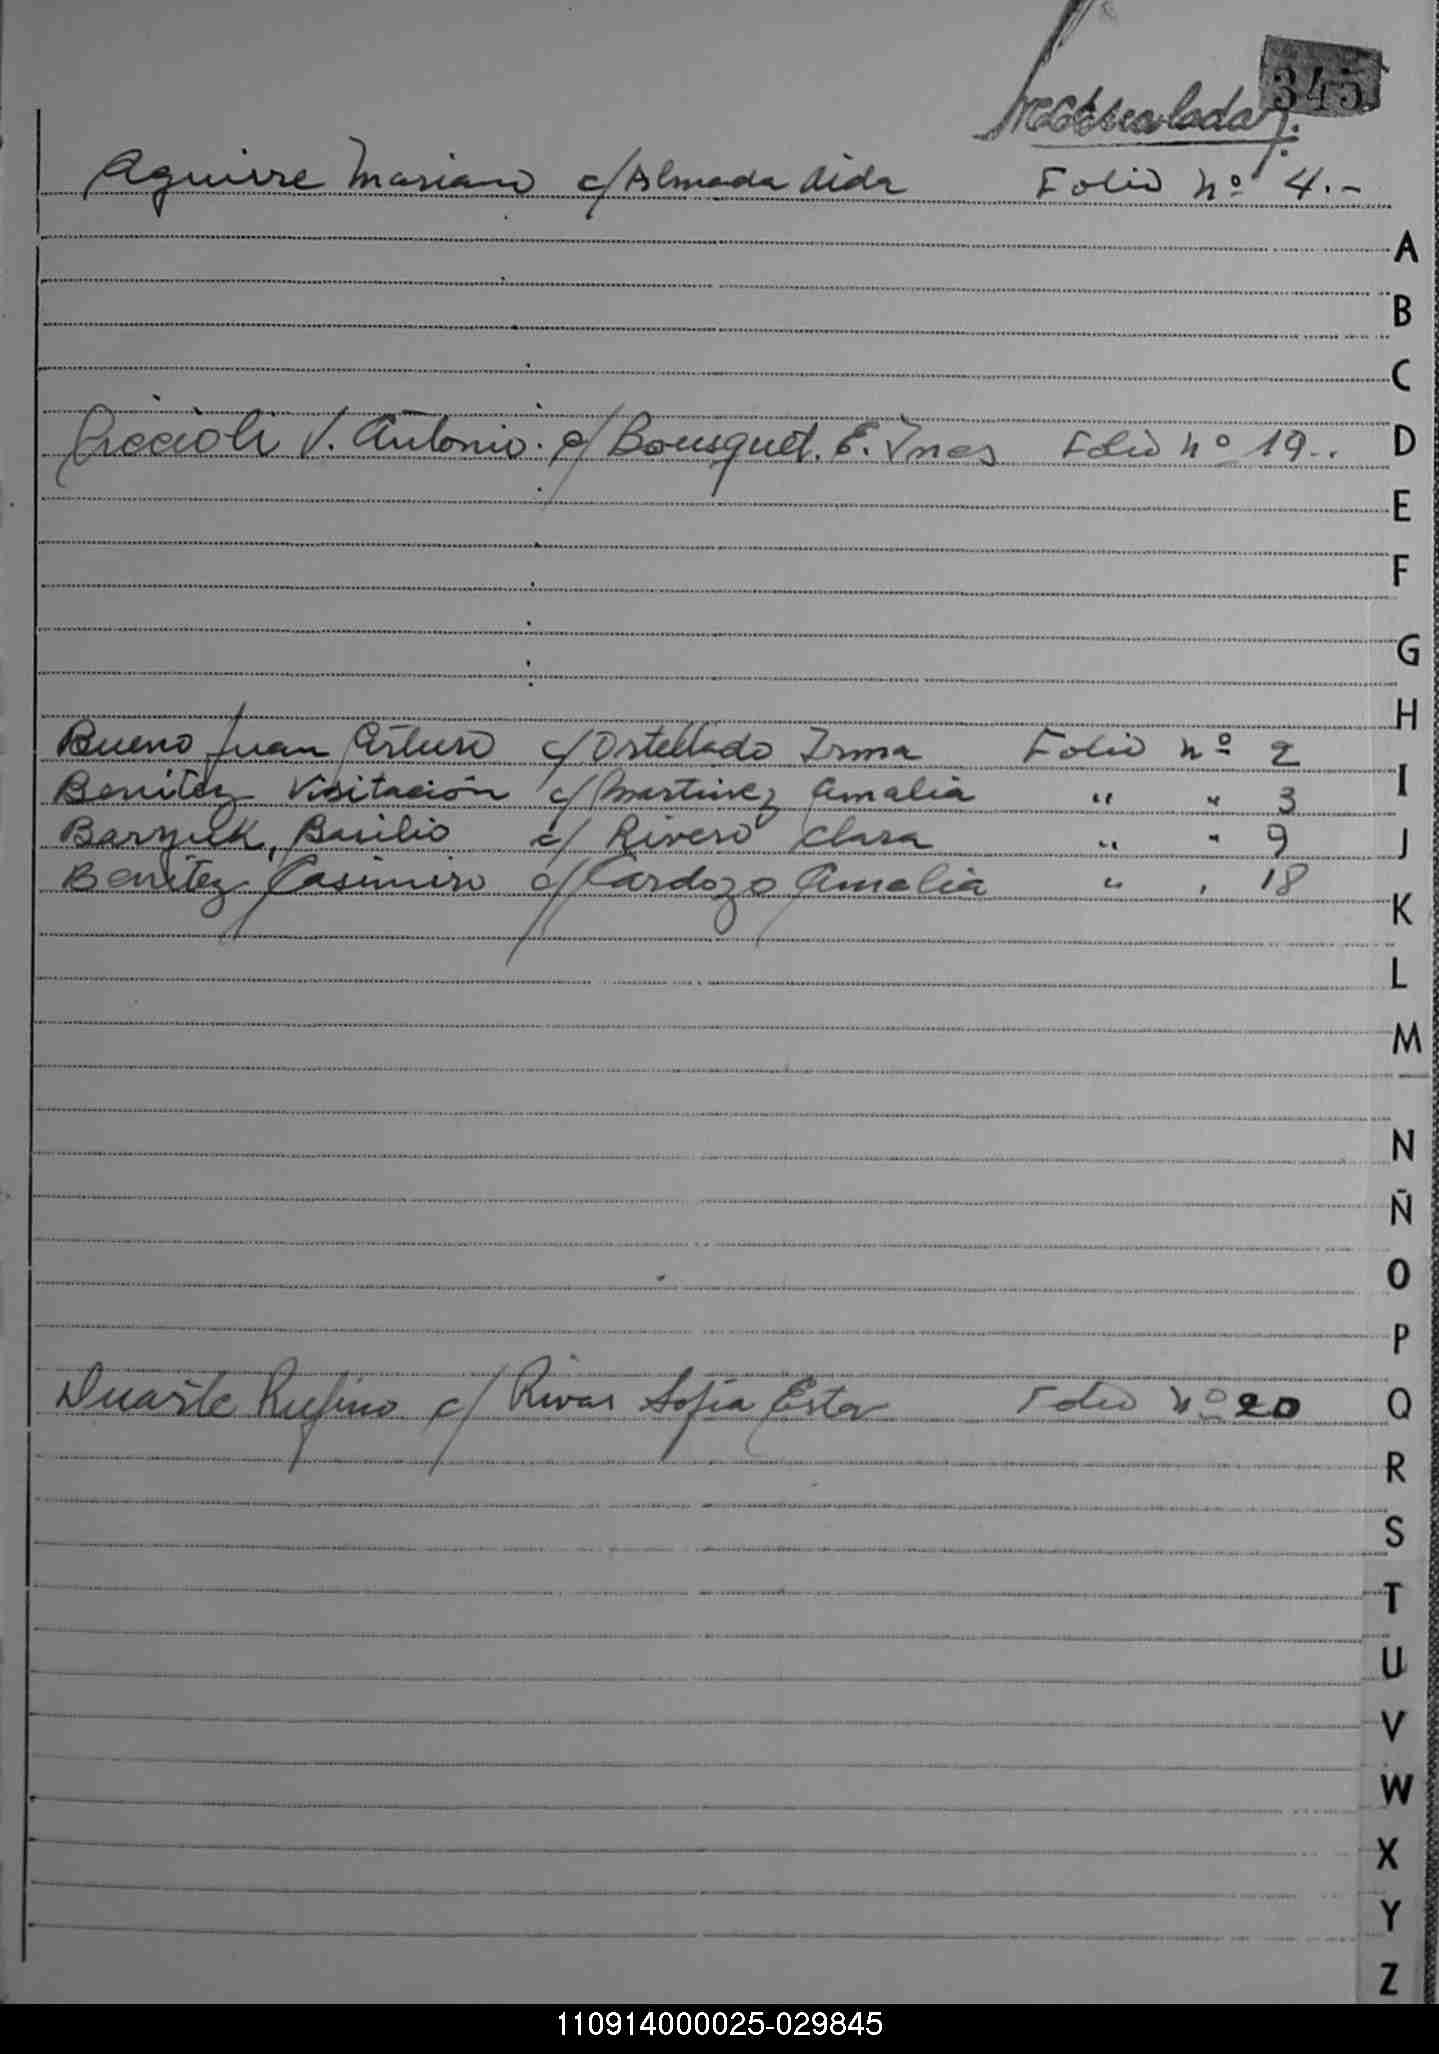 345
Aguirre Mariano c/ Almada Aida Folio nº 4.-
A
B
C
V. Antonio. c/ Bousquet. E. Ines Folio nº 19..
D
E
F
G
H
Bueno Juan Arturo c/ Ostellado Irma Folio nº 2
Benitez Visitación c/ Martinez Amalia " " 3
I
Baryuk, Basilio c/ Rivero Clara " " 9
J
Benitez Casimiro c/ Cardozo Amalia " " 18
K
L
M
N
Ñ
O
P
Duarte Rufino c/ Rivas Sofia Ester Folio nº 20
Q
R
S
T
U
V
W
X
Y
Z
110914000025-029845